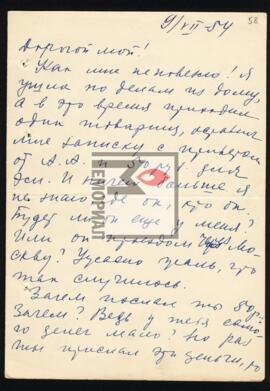 58
9/VII-54
Дорогой мой!
Как мне не повезло! Я
ушла по делам из дому,
а в это время приходил
один товарищ, оставил
мне записку с приветом
от А.А. и 50 ру. для
Эси. И ничего больше я
не знаю где он, кто он.
Будет ли он еще у меня?
Или он проездом через Мо-
скву? Ужасно жаль, что
так случилось.
МЕМОРИАЛ
Зачем послал ты 50 р.
Зачем? Ведь у тебя само-
го денег мало? Но раз
ты прислал эти деньги, то